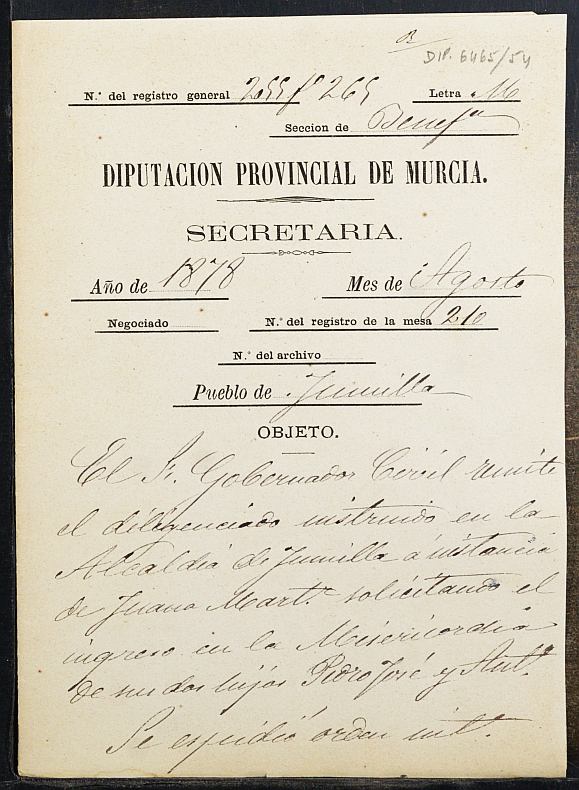 DIP. 6465/54
N.º del registro general 2655 fº 265 Letra M
Seccion de Benefª
DIPUTACION PROVINCIAL DE MURCIA.
SECRETARIA.
Año de 1878 Mes de Agosto
Negociado N.º del registro de la mesa 216
N.º del archivo
Pueblo de Jumilla
OBJETO.
El Sr. Gobernador Civil remite
el diligenciado instruido en la
Alcaldia de Jumilla á instancia
de Juana Mart.z solicitando el
ingreso en la Misericordia
de sus dos hijos Pedro José y Antº.
Se espidió orden